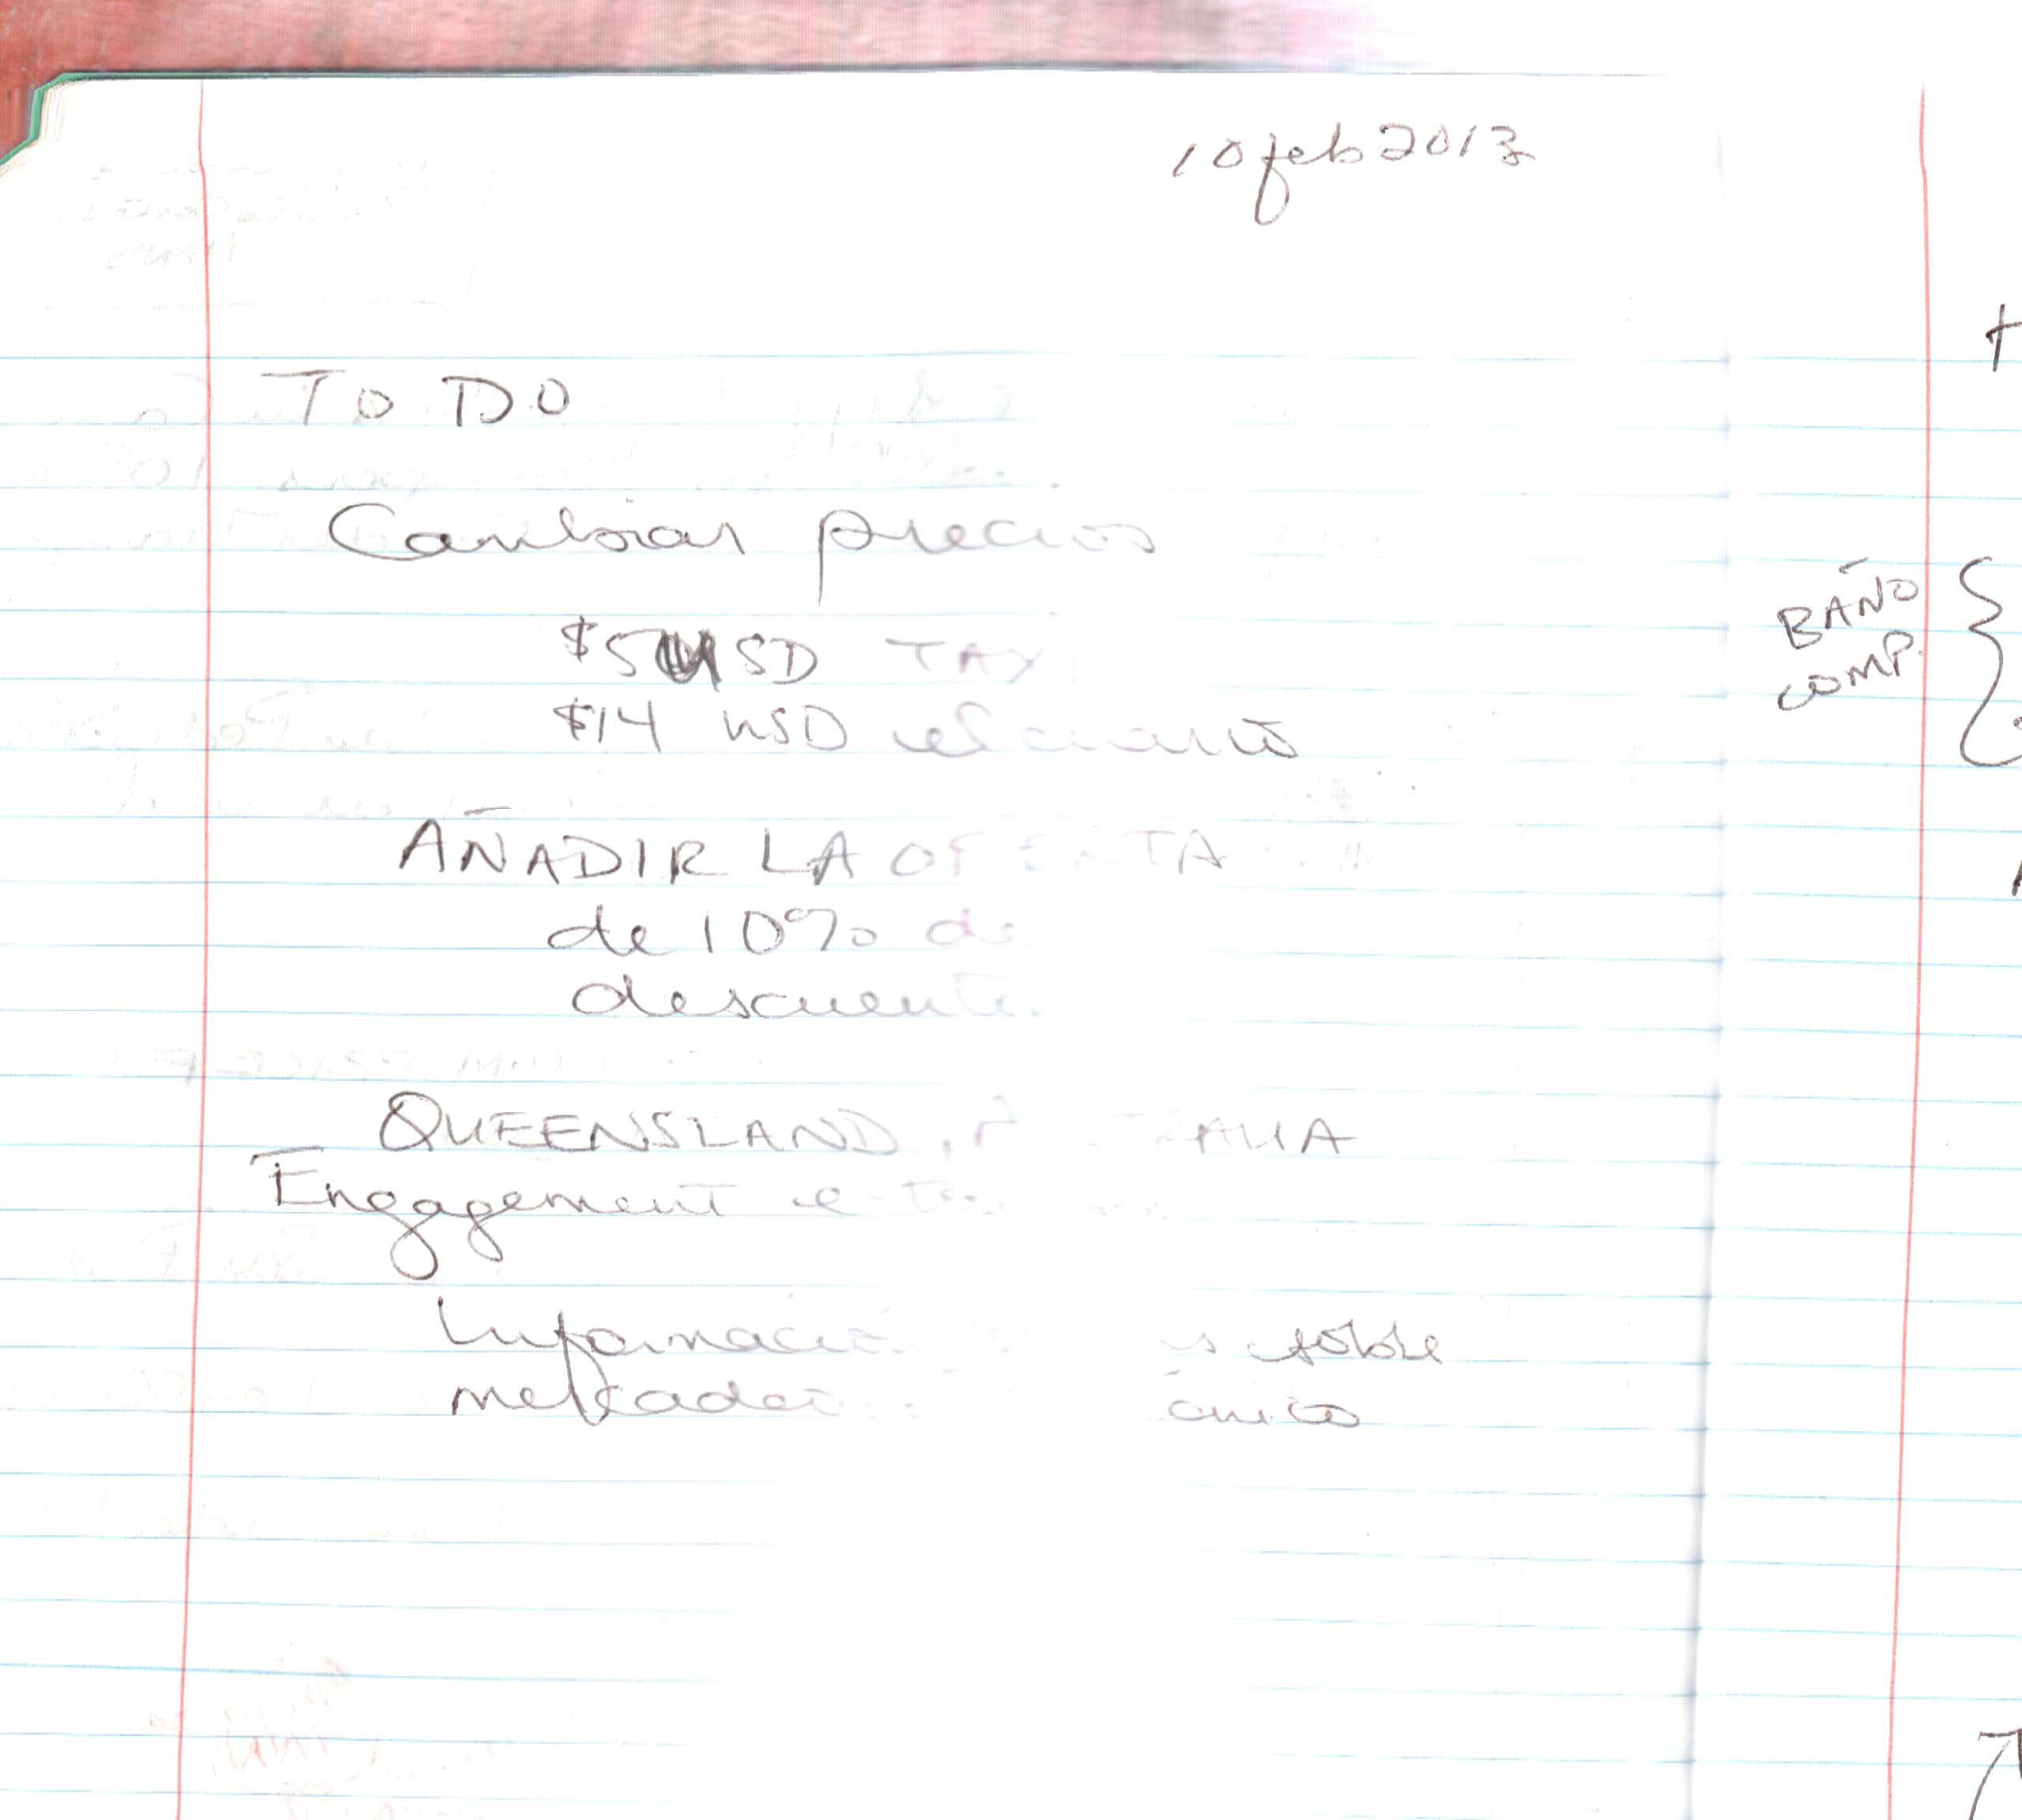 10 feb 2013
TO DO
Cambiar precios
$5 USD TAXI
$14 USD el cuarto
AÑADIR LA OFERTA
de 10% de
descuento
QUEENSLAND, AUSTRALIA
Engagement
Información sobre
BAÑO
COMP.